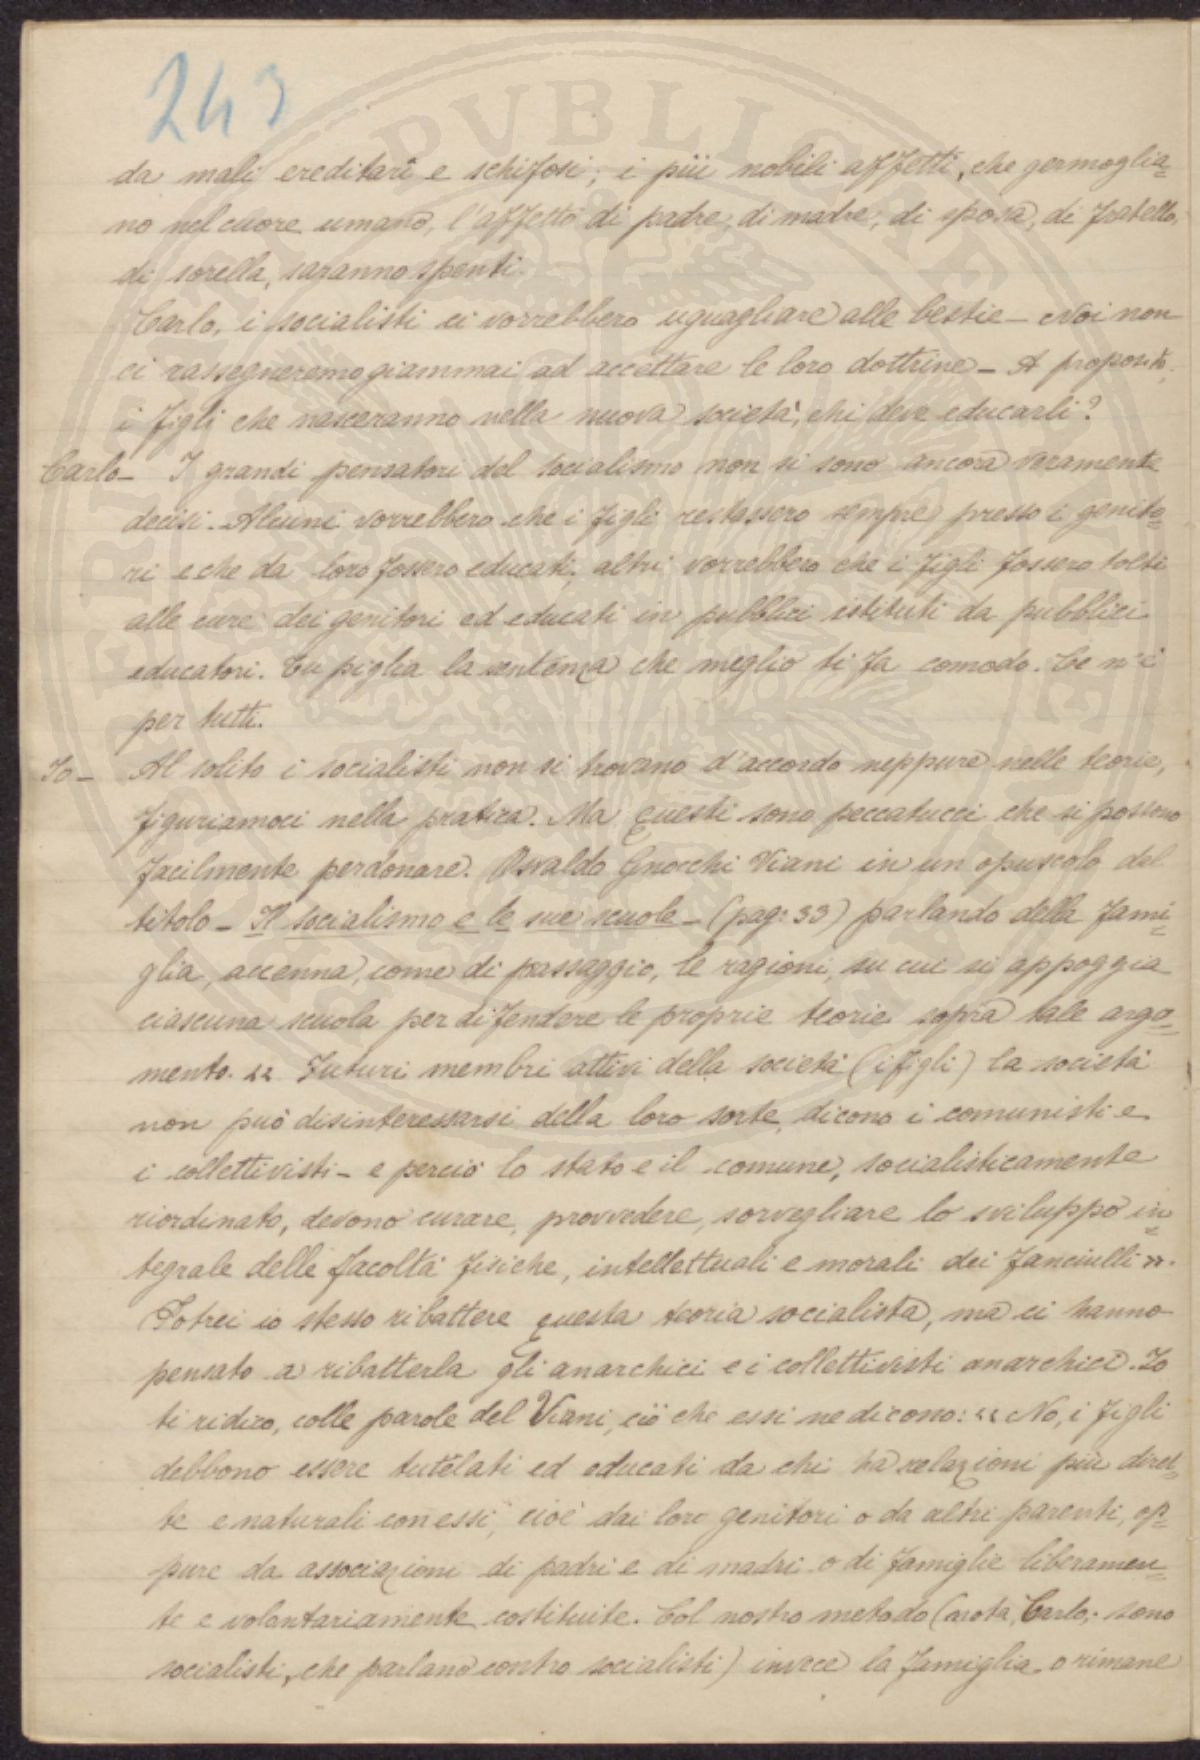 243
da mali ereditarî e schifosi; i più nobili affetti, che germoglia=
no nel cuore umano, l'affetto di padre, di madre, di sposa, di fratello,
di sorella, saranno spenti.
Carlo, i socialisti ci vorrebbero uguagliare alle bestie - Noi non
ci rassegneremo giammai ad accettare le loro dottrine - A proposito,
i figli che nasceranno nella nuova società, chi deve educarli?
Carlo - I grandi pensatori del socialismo non si sono ancora veramente
decisi. Alcuni vorrebbero che i figli restassero sempre presso i genito=
ri e che da loro fossero educati, altri vorrebbero che i figli fossero tolti
alle cure dei genitori ed educati in pubblici istituti da pubblici
educatori. Tu piglia la sentenza che meglio ti fa comodo. Ce n'è
per tutti.
Io - Al solito i socialisti non si trovano d'accordo neppure nelle teorie,
figuriamoci nella pratica. Ma questi sono peccatucci che si possono
facilmente perdonare. Osvaldo Gnocchi Viani in un opuscolo dal
titolo - Il socialismo e le sue scuole - (pag: 33) parlando della fami=
glia, accenna, come di passaggio, le ragioni, su cui si appoggia
ciascuna scuola per difendere le proprie teorie sopra tale argo=
mento. « Futuri membri attivi della società (i figli) la società
non può disinteressarsi della loro sorte, dicono i comunisti e
i collettivisti - e perciò lo stato e il comune, socialisticamente
riordinato, devono curare, provvedere, sorvegliare lo sviluppo in=
tegrale delle facoltà fisiche, intellettuali e morali dei fanciulli ».
Potrei io stesso ribattere questa teoria socialista, ma ci hanno
pensato a ribatterla gli anarchici e i collettivisti anarchici. Io
ti ridico, colle parole del Viani, ciò che essi ne dicono: « No, i figli
debbono essere tutelati ed educati da chi ha relazioni più diret=
te e naturali con essi, cioè dai loro genitori o da altri parenti, op=
pure da associazioni di padri e di madri o di famiglie liberamen=
te e volontariamente costituite. Col nostro metodo (nota, Carlo, sono
socialisti, che parlano contro socialisti) invece la famiglia o rimane
PVBLICAE